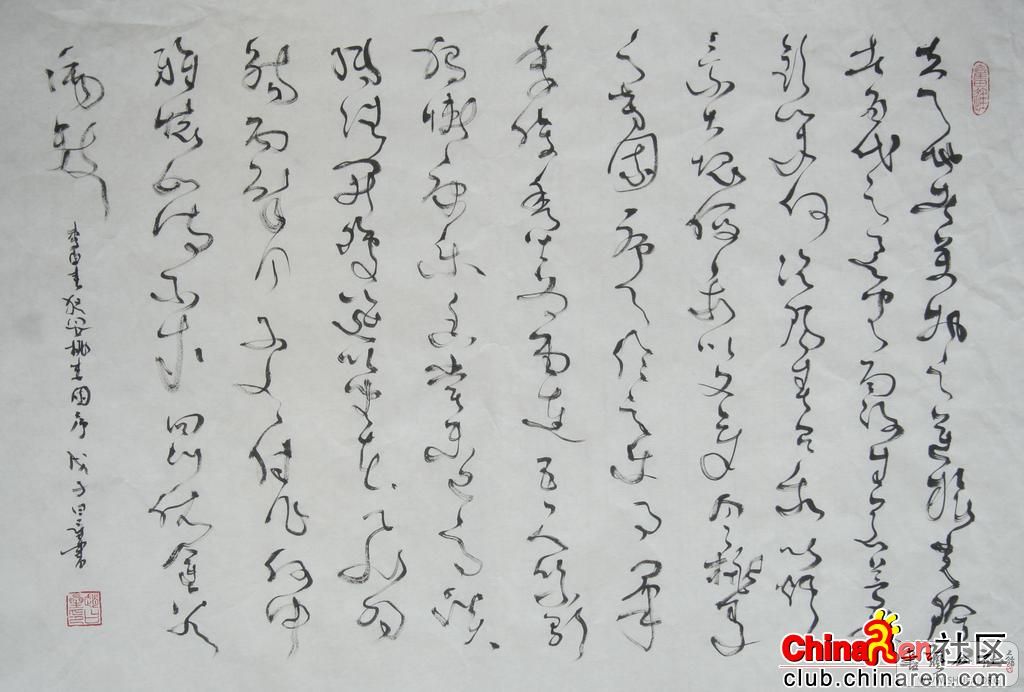 夫天地者萬物之逆旅光陰
者百代之過客而浮生若夢為
歡幾何況陽春召我以煙
景大塊假我以文章會桃李
之芳園序天倫之樂事群
季俊秀皆為惠連吾人詠歌
獨慚康樂幽賞未已高談
轉清開瓊筵以坐花飛羽
觴而醉月不有佳作何伸
雅懷如詩不成罰依金谷
酒數
李白春夜宴桃李園序 戊子 書
ChinaRen社区
club.chinaren.com